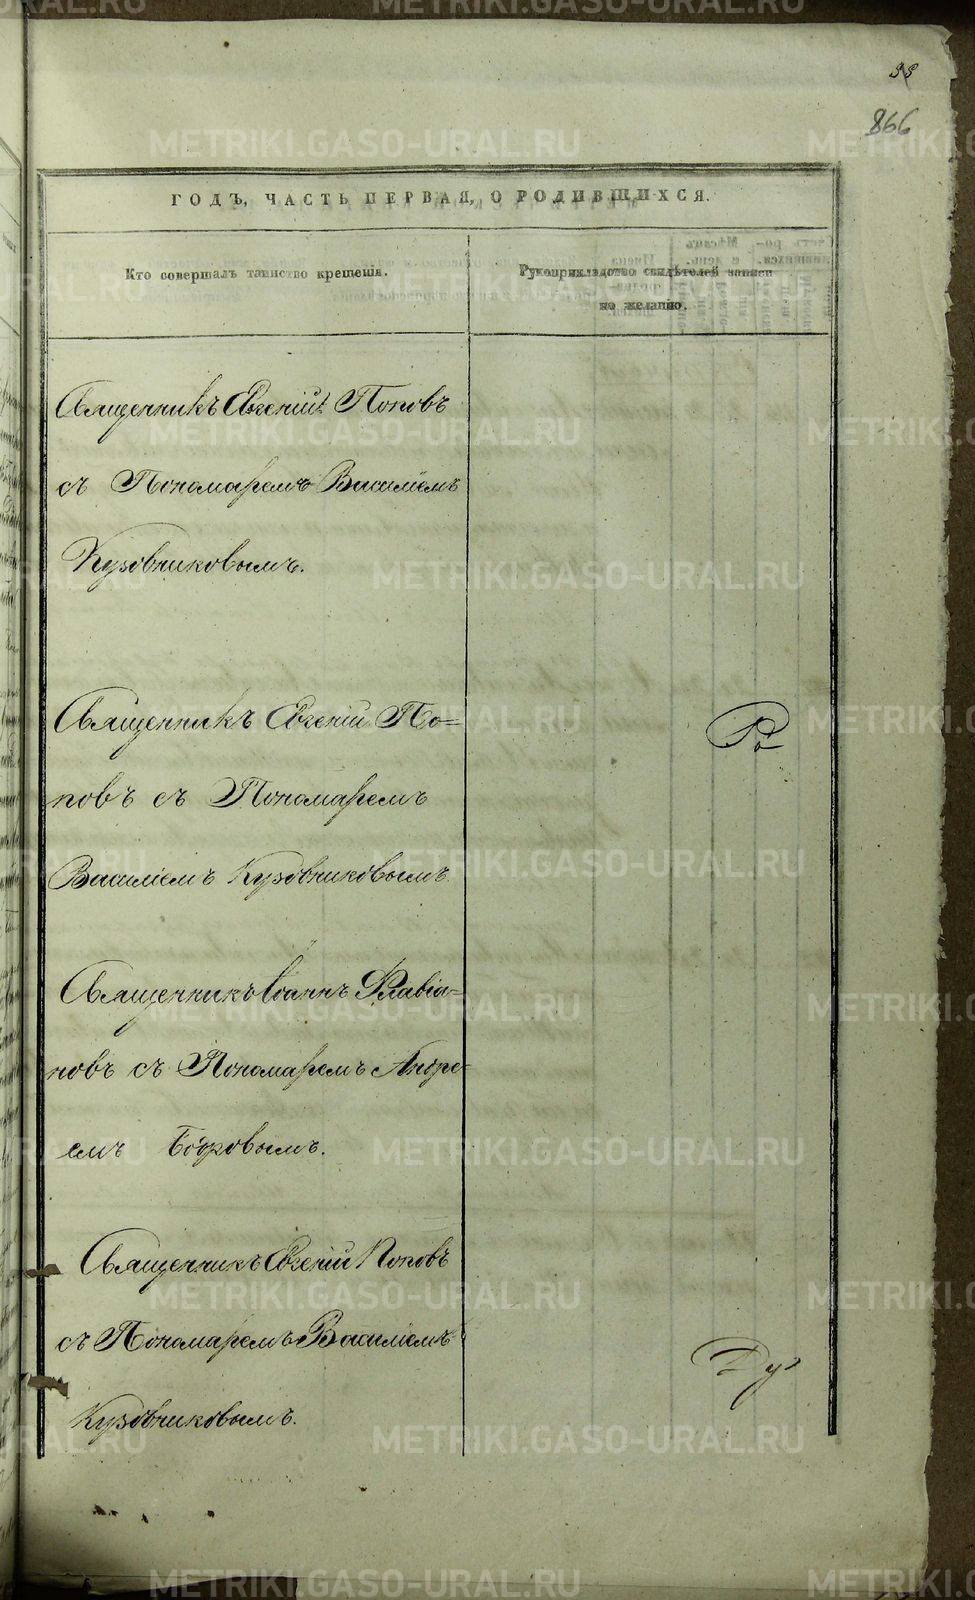 METRIKI.GASO-URAL.RU
33
866
ГОДЪ, ЧАСТЬ ПЕРВАЯ, О РОДИВШИХСЯ.
Кто совершалъ таинство крещенія.
Рукоприкладство свидѣтелей записи
по желанію.
Священникъ Евгеній Поповъ
съ Пономаремъ Василіемъ
Кузовниковымъ.
Священникъ Евгеній По=
повъ съ Пономаремъ
Василіемъ Кузовниковымъ
Священникъ Іоаннъ Флавіа=
новъ съ Пономаремъ Андре-
емъ Бобровымъ.
Священникъ Евгеній Поповъ
съ Пономаремъ Василіемъ
Кузовниковымъ.
Ду